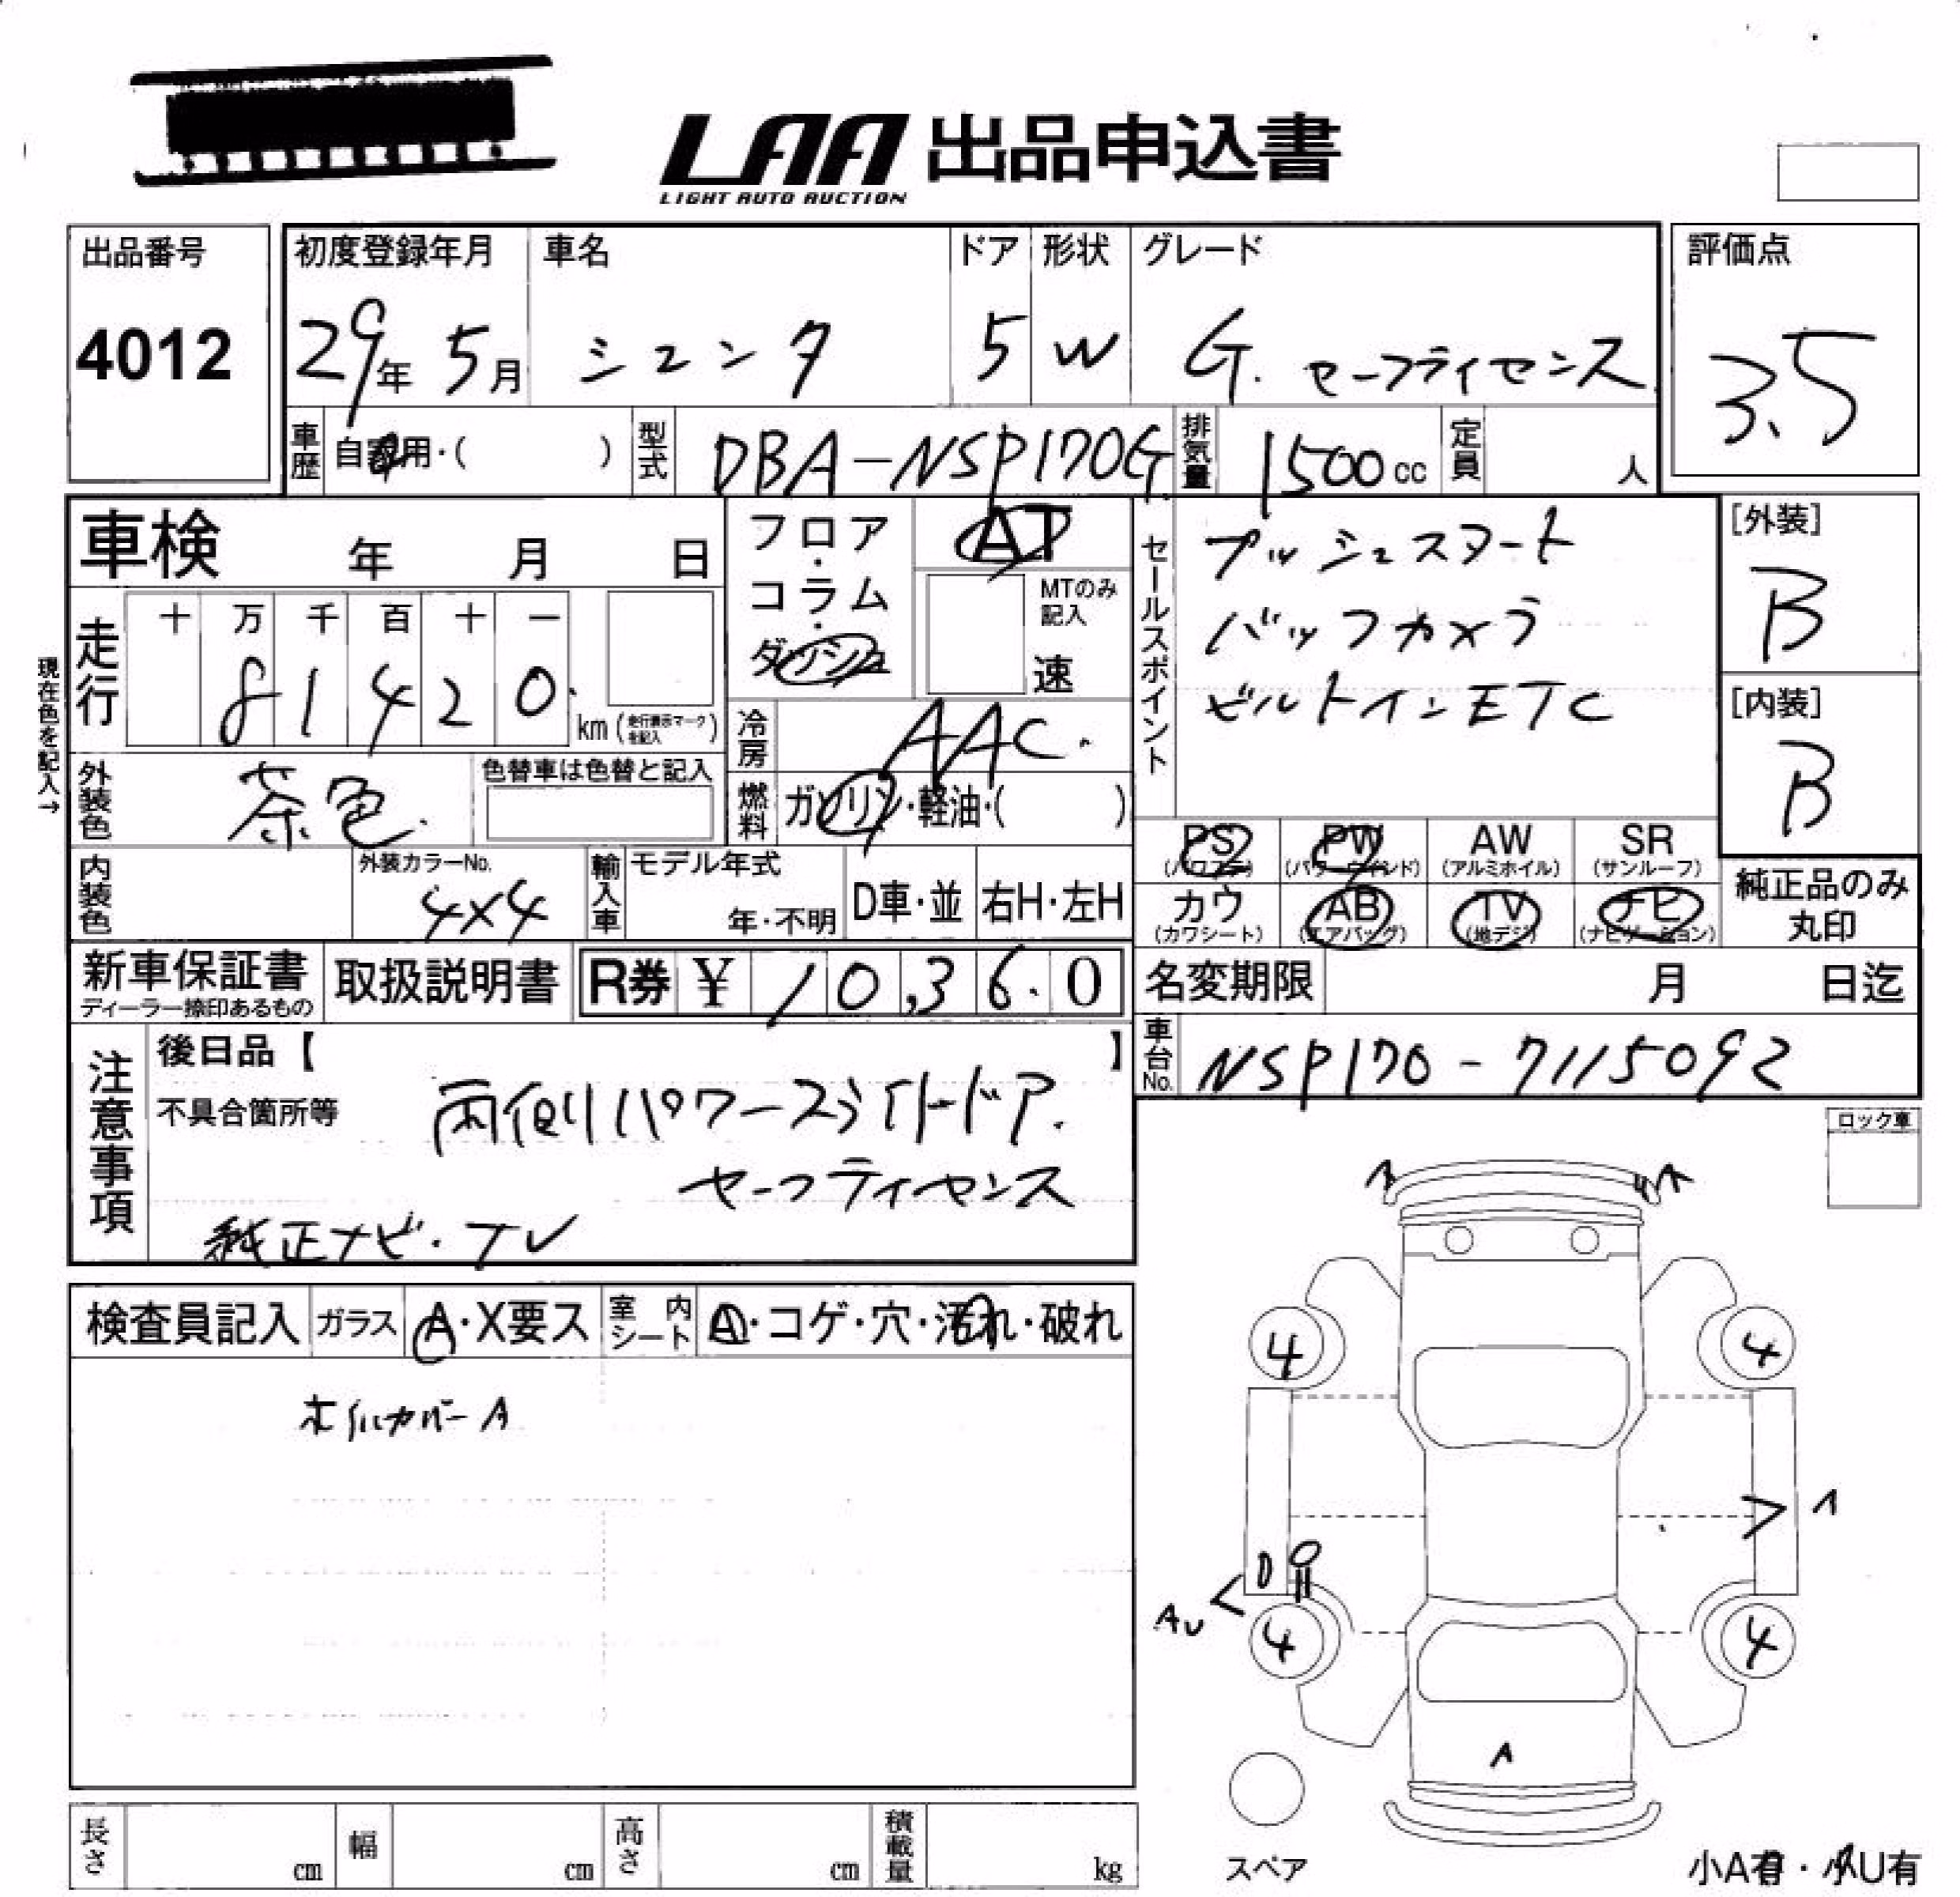 LAA 出品申込書
LIGHT AUTO AUCTION
出品番号
4012
初度登録年月 車名 ドア 形状 グレード
29年 5月 シエンタ 5 W G. セーフティセンス
評価点
3.5
車歴 自家用・( ) 型式 DBA-NSP170G 排気量 1500cc 定員 人
車検 年 月 日
フロア・コラム・ダッシュ
AT
MTのみ記入
速
セールスポイント
プッシュスタート
バックカメラ
ビルトインETC
[外装]
B
[内装]
B
現在色を記入→
走行
十 万 千 百 十 一
8 1 4 2 0
km (走行表示マークを記入)
冷房 AAC.
外装色 茶色 色替車は色替と記入
燃料 ガソリン・軽油・( )
PS (パワステ) PW (パワーウインド) AW (アルミホイル) SR (サンルーフ)
カワ (カワシート) AB (エアバッグ) TV (地デジ) ナビ (ナビゲーション)
純正品のみ
丸印
内装色 外装カラーNo. 4×4 輸入車 モデル年式 年・不明 D車・並 右H・左H
新車保証書 取扱説明書 R券 ¥ 10,360
ディーラー捺印あるもの
名変期限 月 日迄
車台No. NSP170-7115092
注意事項
後日品【 】
不具合箇所等 両側パワースライドドア.
セーフティセンス
純正ナビ・TV
ロック車
検査員記入 ガラス A・X要ス 室内シート A・コゲ・穴・汚れ・破れ
ホイルカバーA
A A
4 4
A
AU
4 4
A
スペア
小A有・小U有
長さ cm 幅 cm 高さ cm 積載量 kg